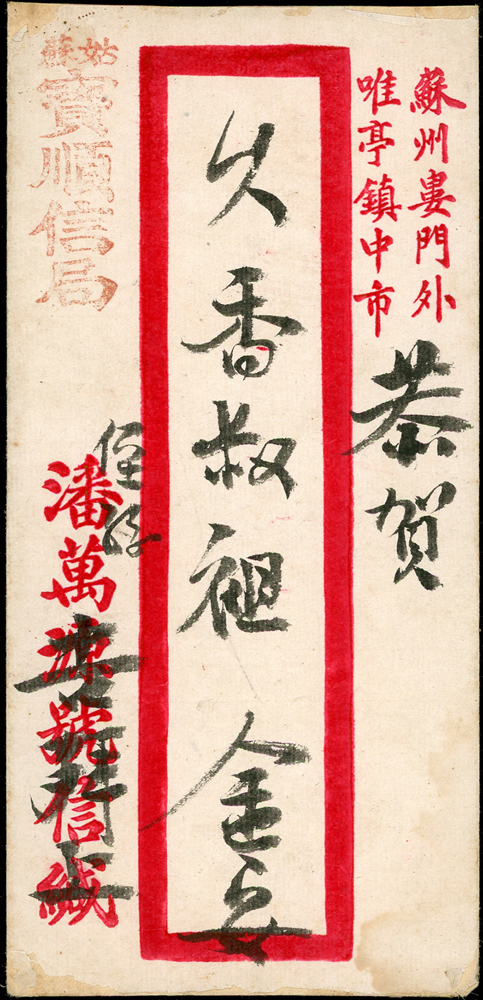 蘇州婁門外
唯亭鎮中市
恭賀
久香叔祖 金安
姑蘇
寶順信局
侄孫
潘萬源號信緘